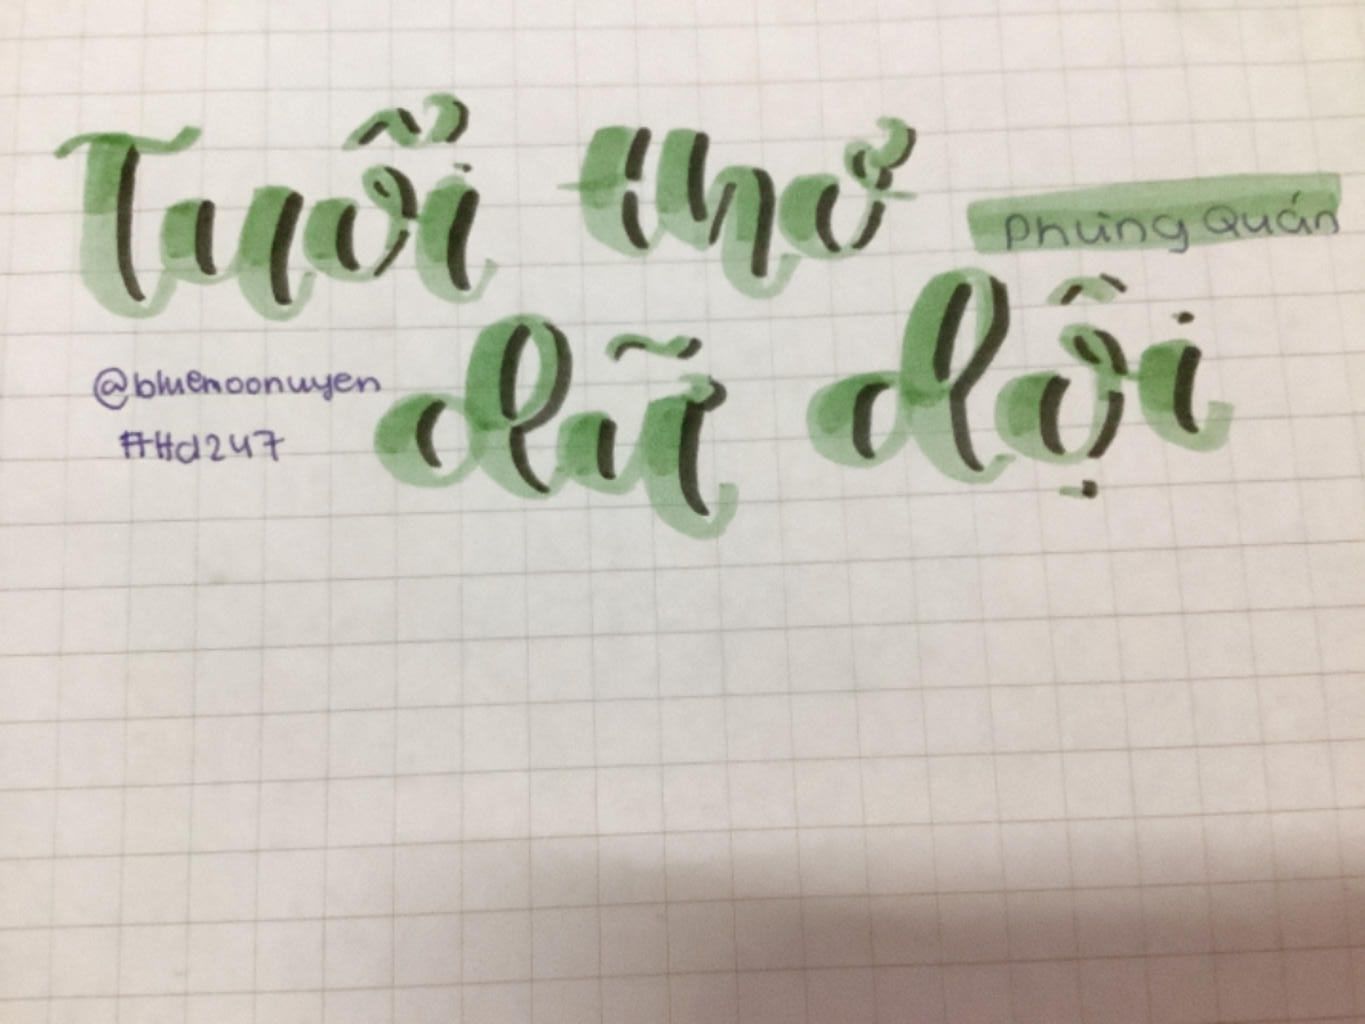 Tuổi thơ
Phùng Quán
dữ dội
@bluemoonuyen
#Hd247